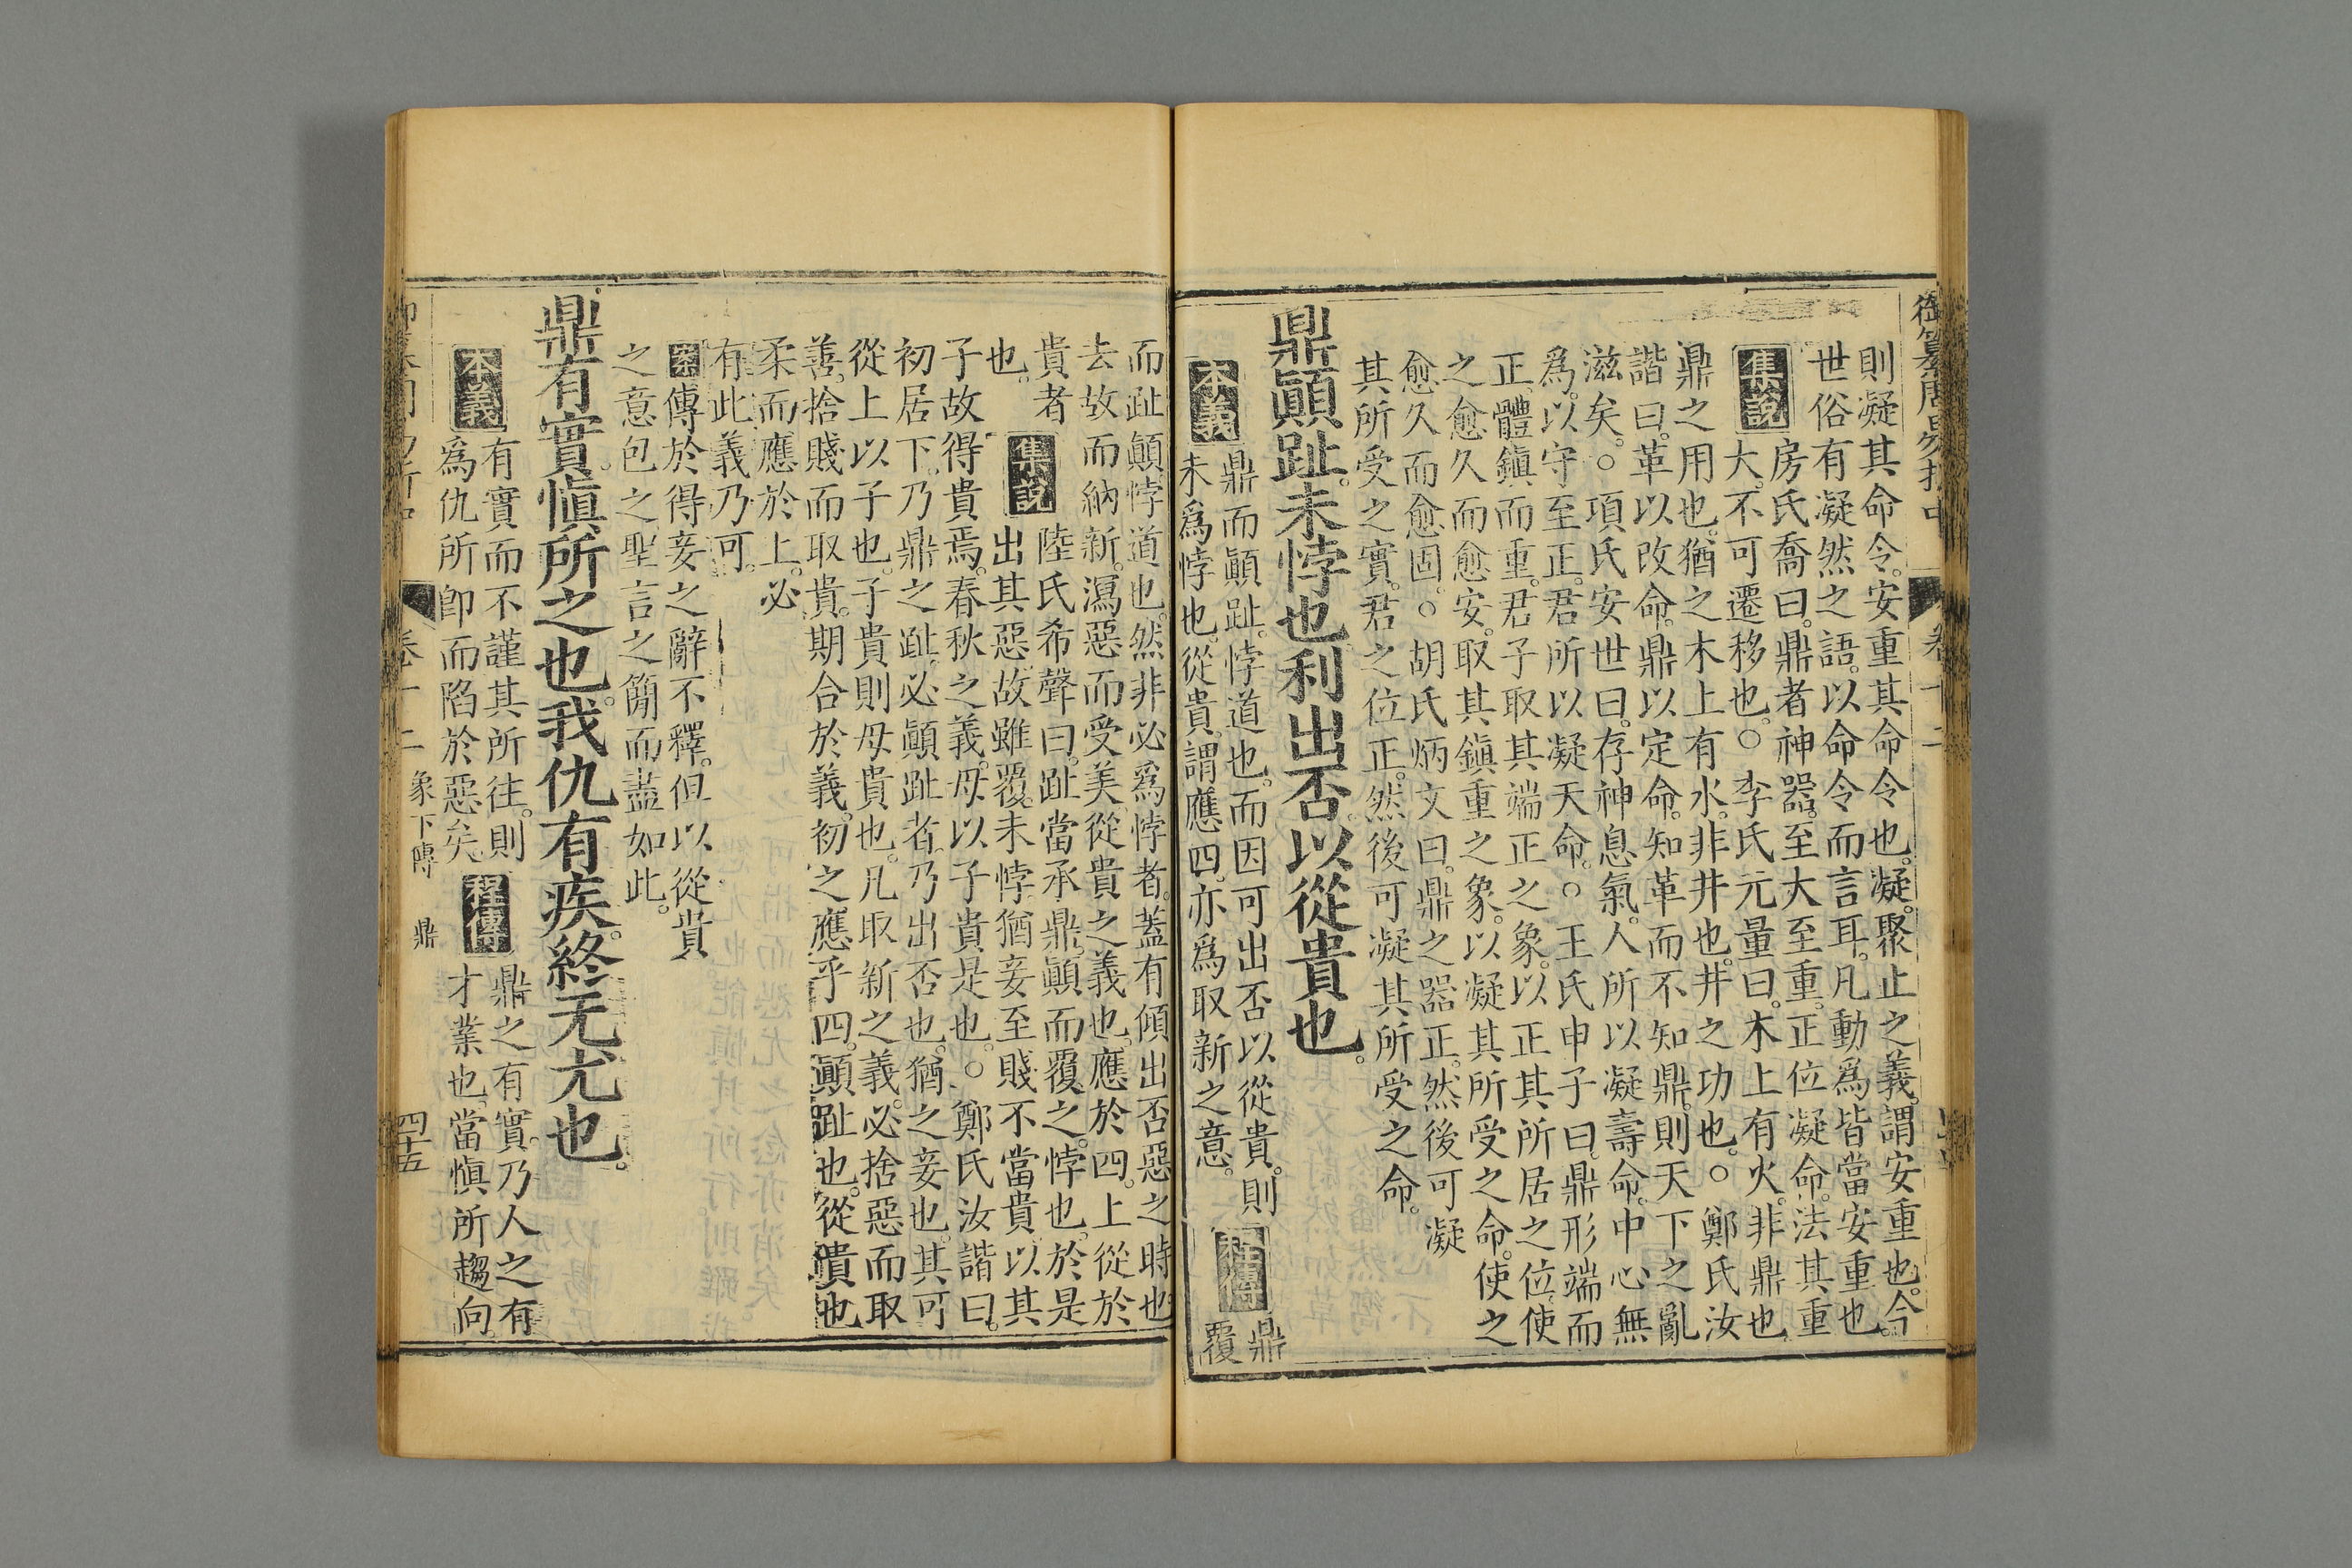 御纂周易折中 卷十二
則凝其命令。安重其命令也。凝。聚止之義。謂安重也。今
世俗有凝然之語。以命令而言耳。凡動爲皆當安重也。
集說 房氏喬曰。鼎者神器。至大至重。正位凝命。法其重
大。不可遷移也。○李氏元量曰。木上有火。非鼎也。
鼎之用也。猶之木上有水。非井也。井之功也。○鄭氏汝
諧曰。革以改命。鼎以定命。知革而不知鼎。則天下之亂
滋矣。○項氏安世曰。存神息氣。人所以凝壽命。中心無
爲。以守至正。君所以凝天命。○王氏申子曰。鼎形端而
正。體鎮而重。君子取其端正之象。以正其所居之位。使
之愈久而愈安。取其鎮重之象。以凝其所受之命。使之
愈久而愈固。○胡氏炳文曰。鼎之器正。然後可凝
其所受之實。君之位正。然後可凝其所受之命。
鼎顚趾。未悖也。利出否。以從貴也。
本義 鼎而顚趾。悖道也。而因可出否以從貴。則
未爲悖也。從貴。謂應四。亦爲取新之意。
程傳 鼎
覆
而趾顚。悖道也。然非必爲悖者。蓋有傾出否惡之時也。
去故而納新。瀉惡而受美。從貴之義也。應於四。上從於
貴者
也。
集說 陸氏希聲曰。趾當承鼎。顚而覆之。悖也。於是
出其惡。故雖覆。未悖。猶妾至賤不當貴。以其
子故得貴焉。春秋之義。母以子貴是也。○鄭氏汝諧曰。
初居下。乃鼎之趾。必顚趾者。乃出否也。猶之妾也。其可
從上以子也。子貴則母貴也。凡取新之義。必捨惡而取
善。捨賤而取貴。期合於義。初之應乎四。顚趾也。從貴也
柔而應於上。必
有此義乃可。
案 傳於得妾之辭不釋。但以從貴
之意包之。聖言之簡而盡如此。
鼎有實。愼所之也。我仇有疾。終无尤也。
本義 有實而不謹其所往。則
爲仇所卽而陷於惡矣。
程傳 鼎之有實。乃人之有
才業也。當愼所趨向。
卷十二 象下傳 鼎 四十五